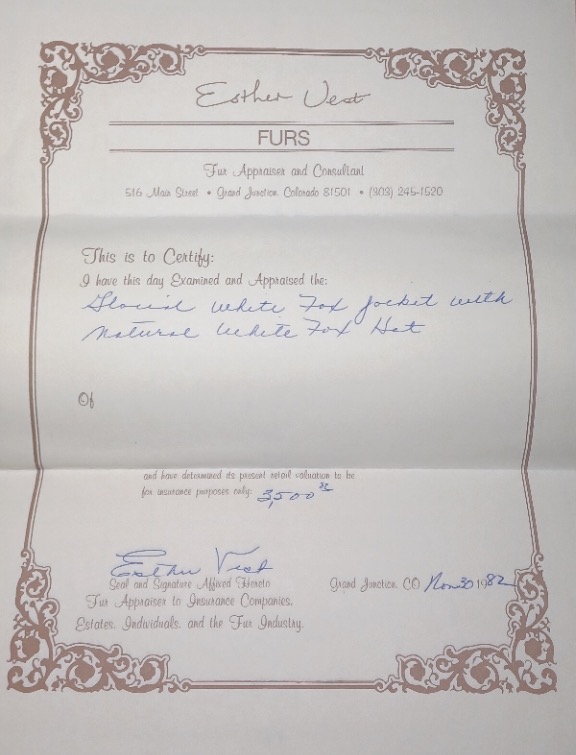 Esther Vest
FURS
Fur Appraiser and Consultant
516 Main Street • Grand Junction, Colorado 81501 • (303) 245-1520
This is to Certify:
I have this day Examined and Appraised the:
White Fox Jacket with
Natural White Fox Hat
Of
and have determined its present retail valuation to be
for insurance purposes only: 3,500
Esther Vest
Seal and Signature Affixed Hereto
Grand Junction, CO Nov 30 1982
Fur Appraiser to Insurance Companies,
Estates, Individuals, and the Fur Industry.